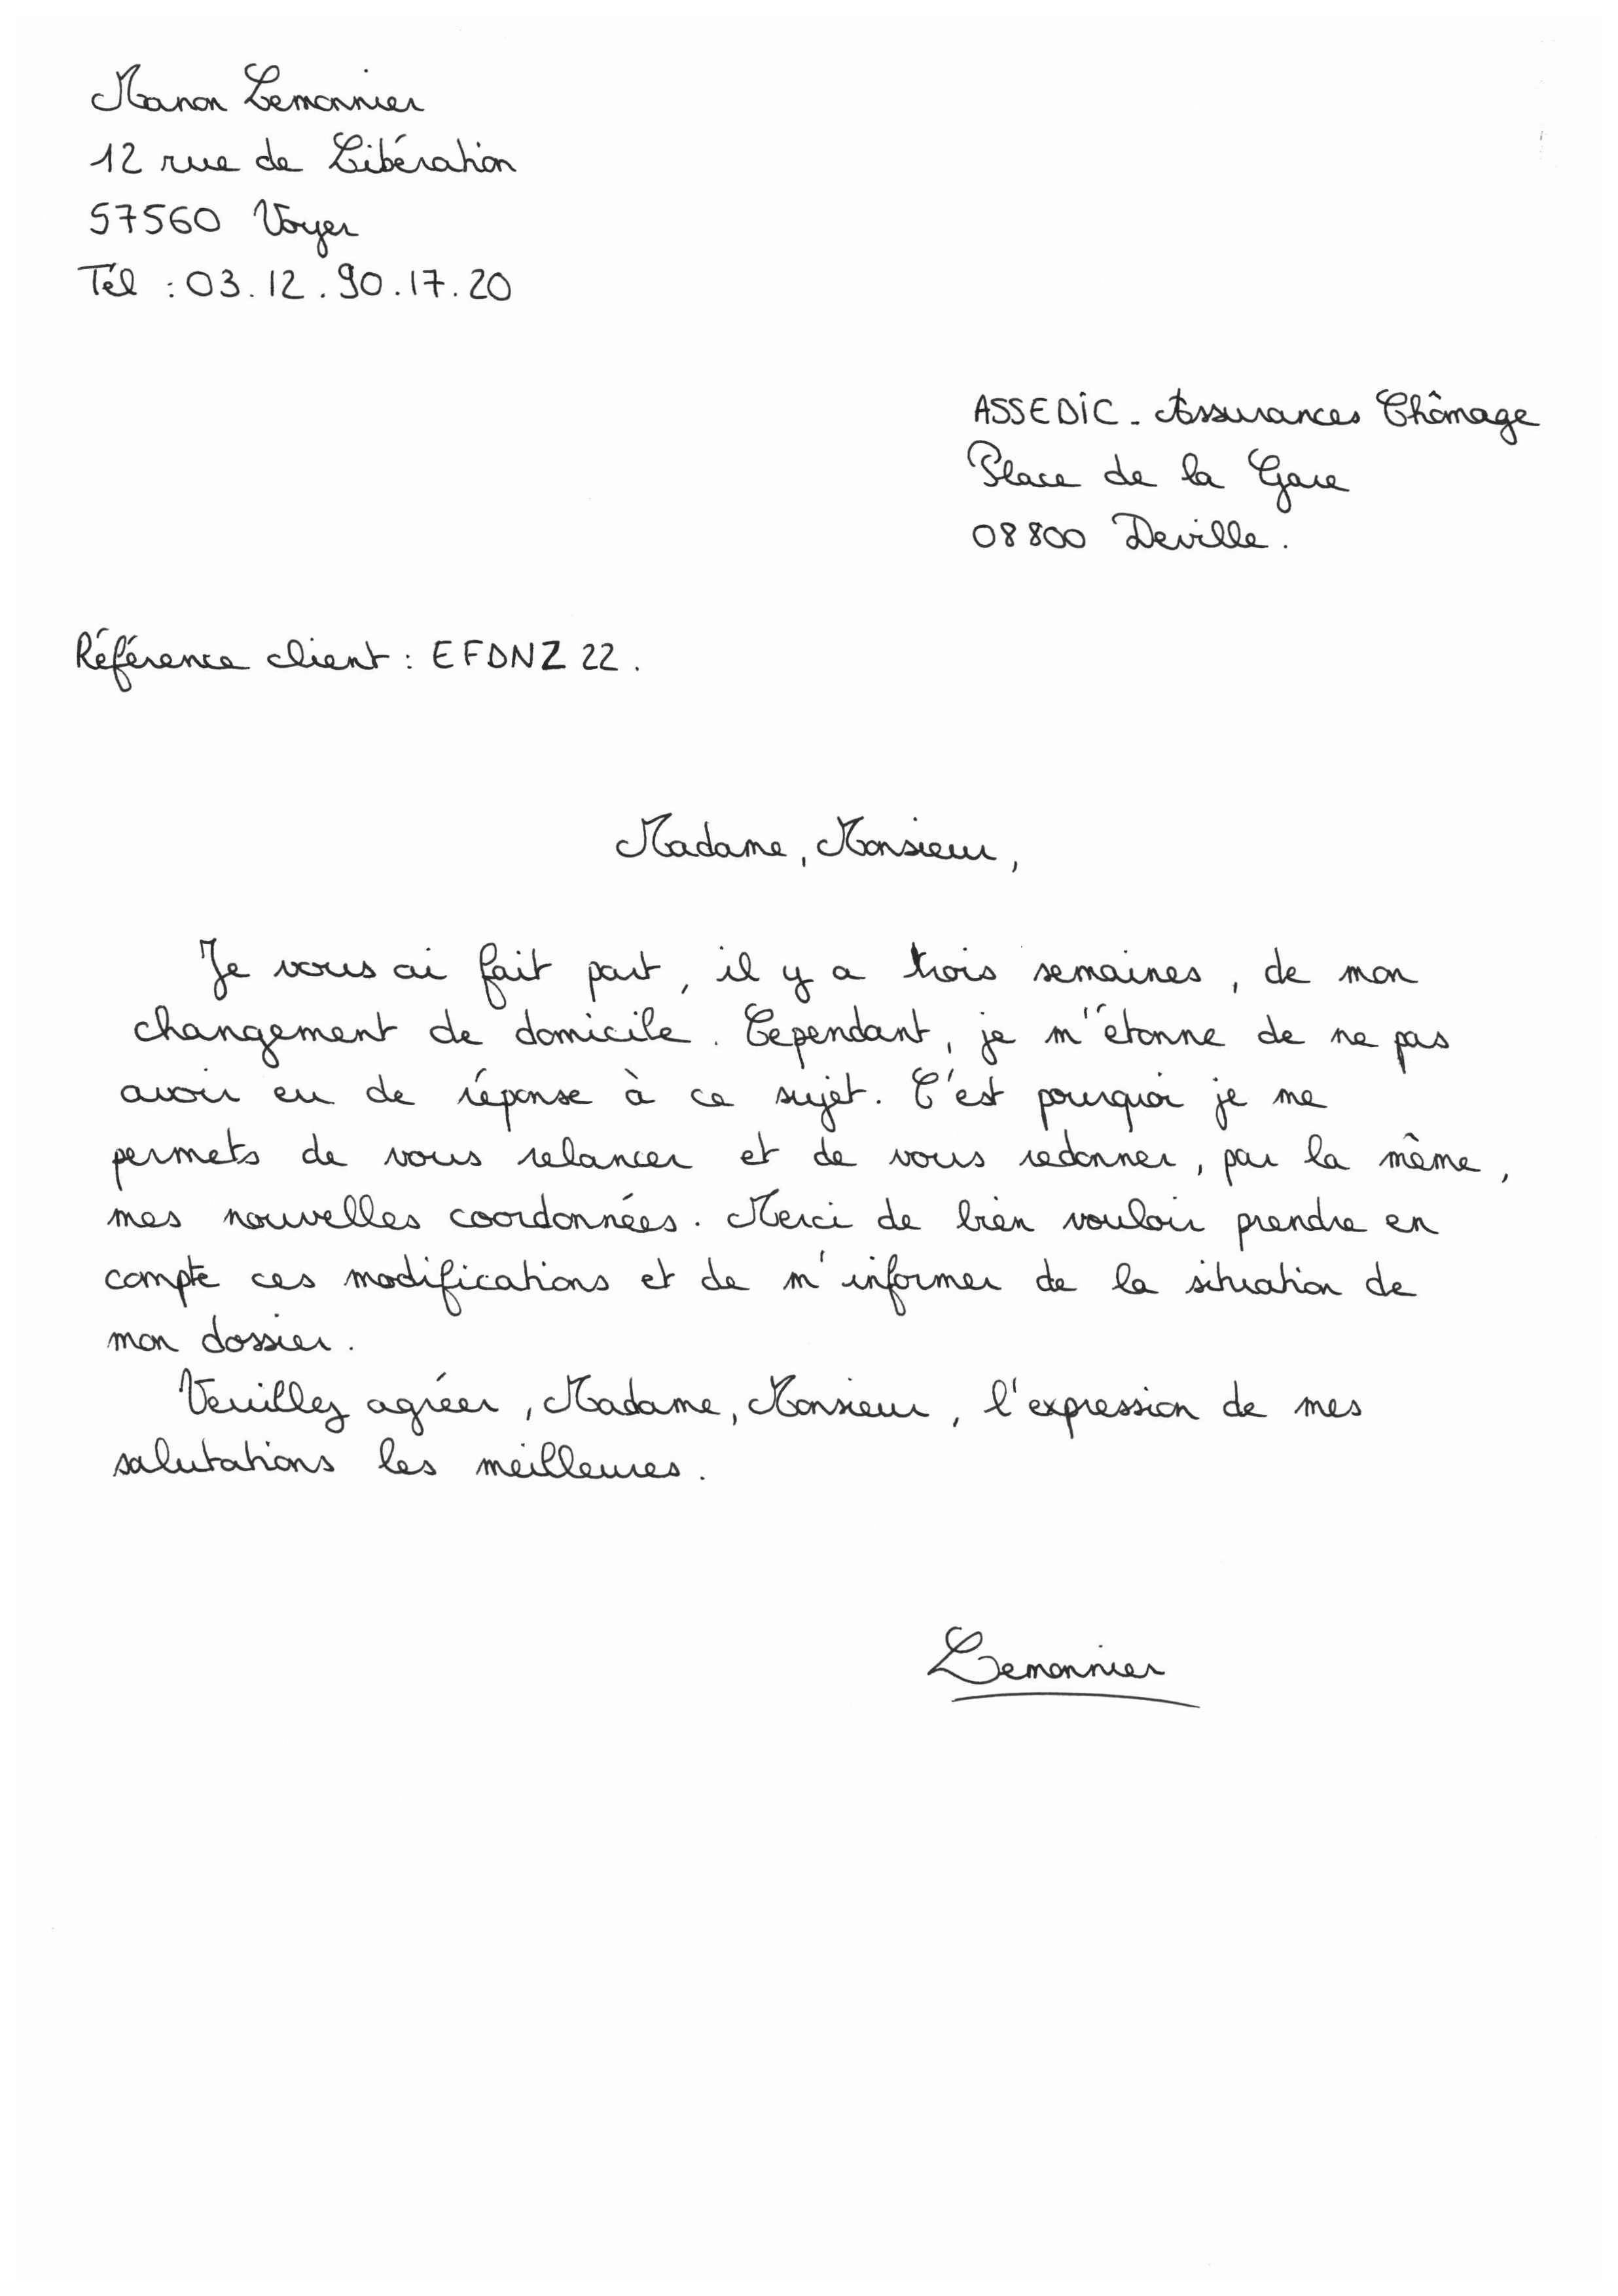 Manon Lemonnier
12 rue de Libération
57560 Voyer
Tél : 03.12.90.17.20
ASSEDIC - Assurances Chômage
Place de la Gare
08800 Deville.
Référence client : EFDNZ 22.
Madame, Monsieur,
Je vous ai fait part, il y a trois semaines, de mon
changement de domicile. Cependant, je m'étonne de ne pas
avoir eu de réponse à ce sujet. C'est pourquoi je me
permets de vous relancer et de vous redonner, par la même,
mes nouvelles coordonnées. Merci de bien vouloir prendre en
compte ces modifications et de m'informer de la situation de
mon dossier.
Veuillez agréer, Madame, Monsieur, l'expression de mes
salutations les meilleures.
Lemonnier